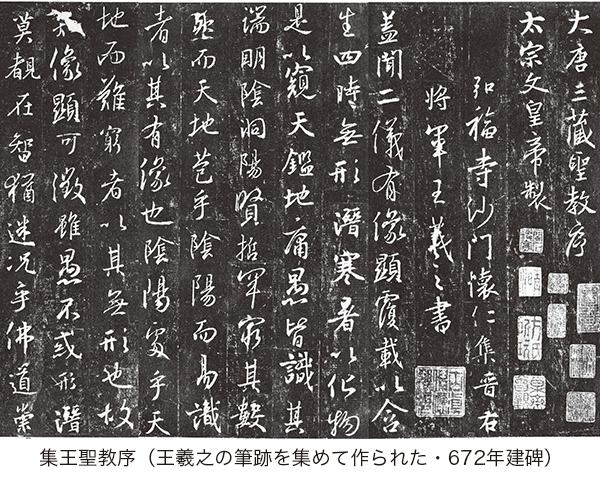 大唐三藏聖教序
太宗文皇帝製
弘福寺沙門懷仁集晉右
將軍王羲之書
蓋聞二儀有像顯覆載以含
生四時無形潛寒暑以化物
是以窺天鑑地庸愚皆識其
端明陰洞陽賢哲罕窮其數
然而天地苞乎陰陽而易識
者以其有像也陰陽處乎天
地而難窮者以其無形也故
知像顯可徵雖愚不惑形潛
莫覩在智猶迷況乎佛道崇
集王聖教序（王羲之の筆跡を集めて作られた・672年建碑）